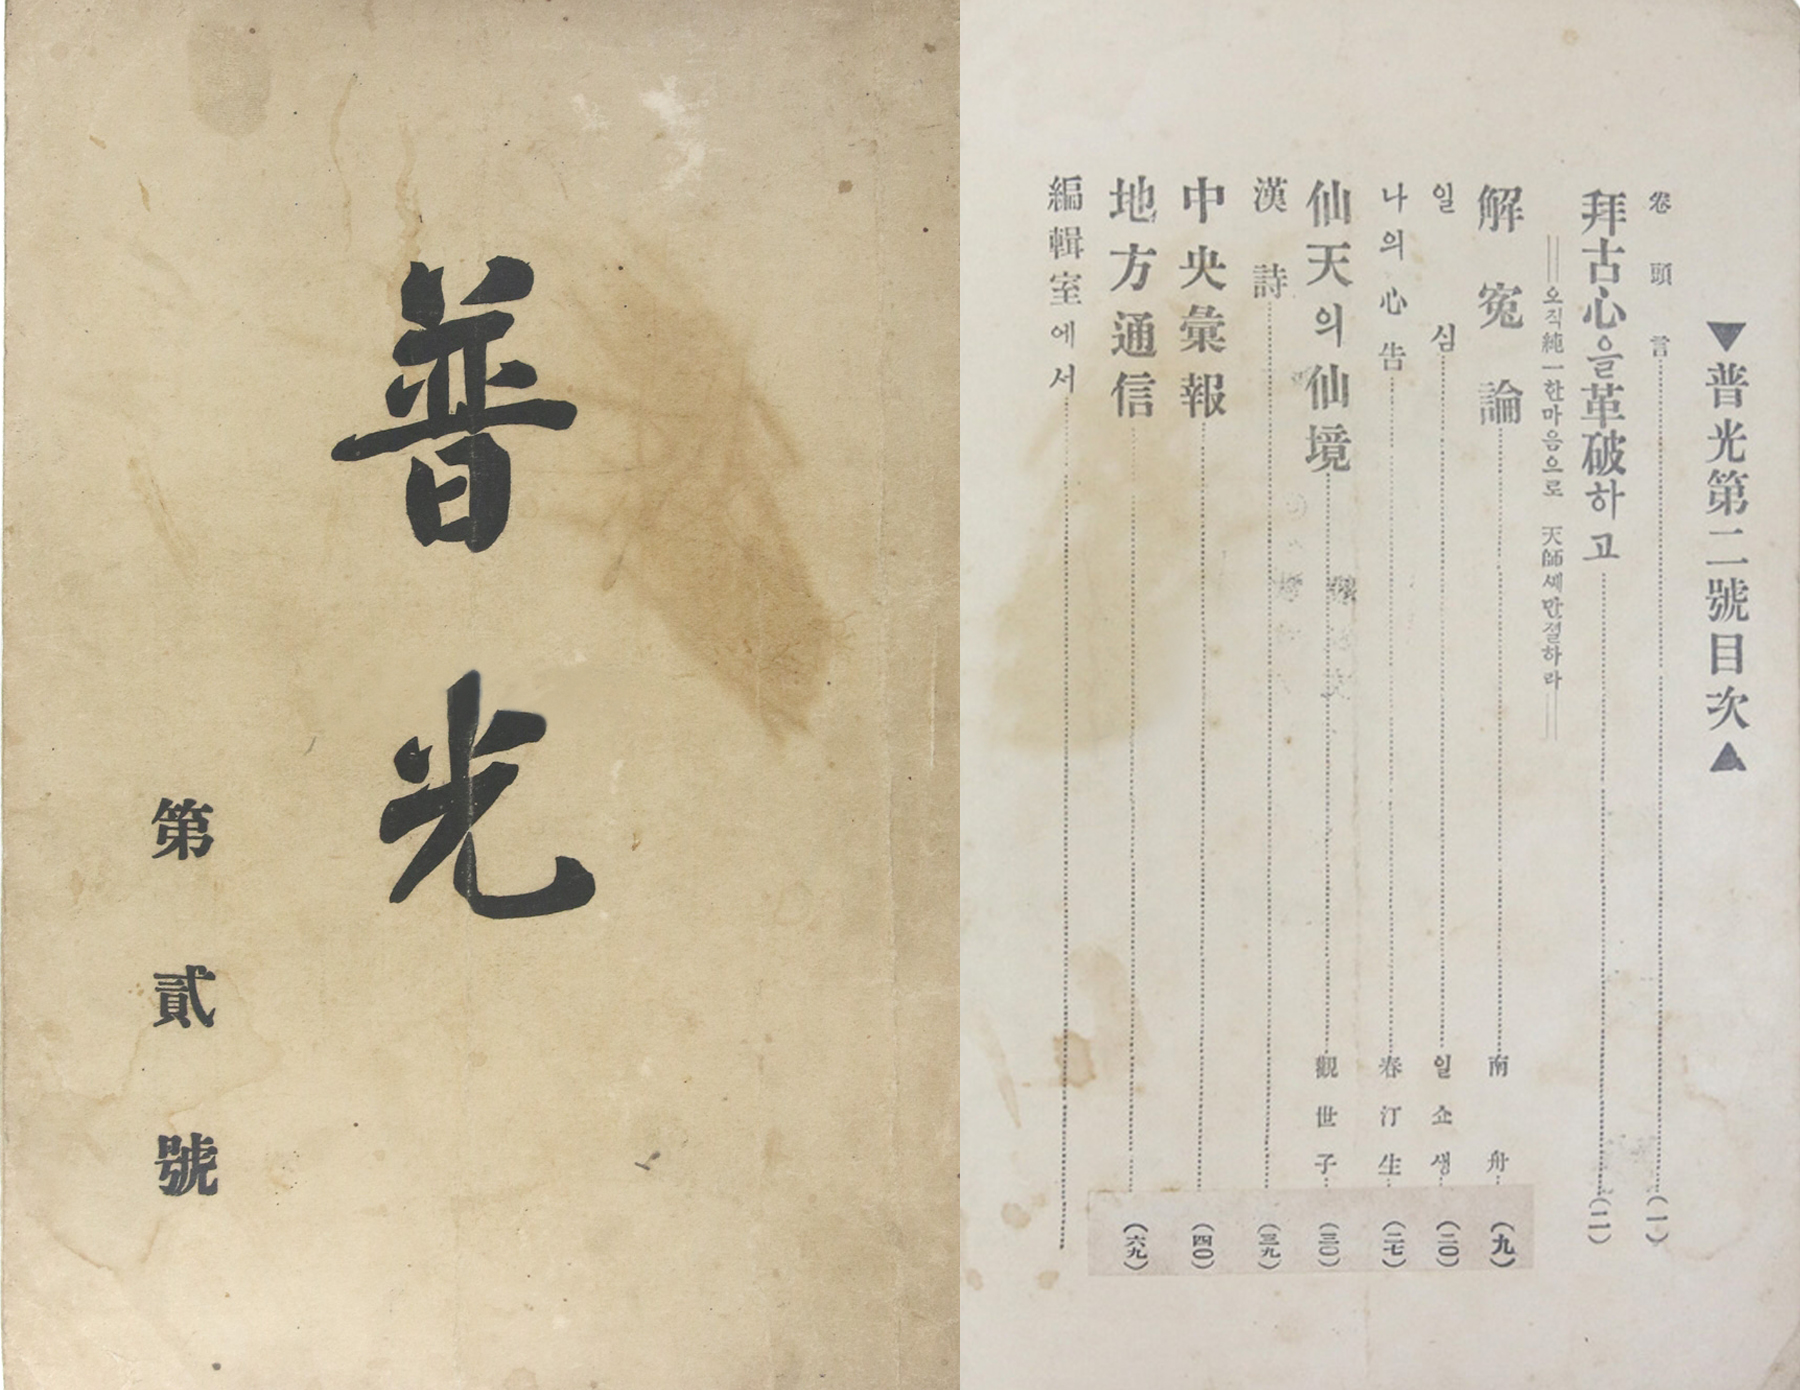 普光
第貳號
▼普光第二號目次▲
卷頭言(一)
拜古心을革破하고(二)
오직純一한마음으로 天師세만결하라
解寃論 南舟(九)
일심 일쇼생(二〇)
나의心告 春汀生(二七)
仙天의仙境 觀世子(三〇)
漢詩(三九)
中央彙報(四〇)
地方通信(六九)
編輯室에서